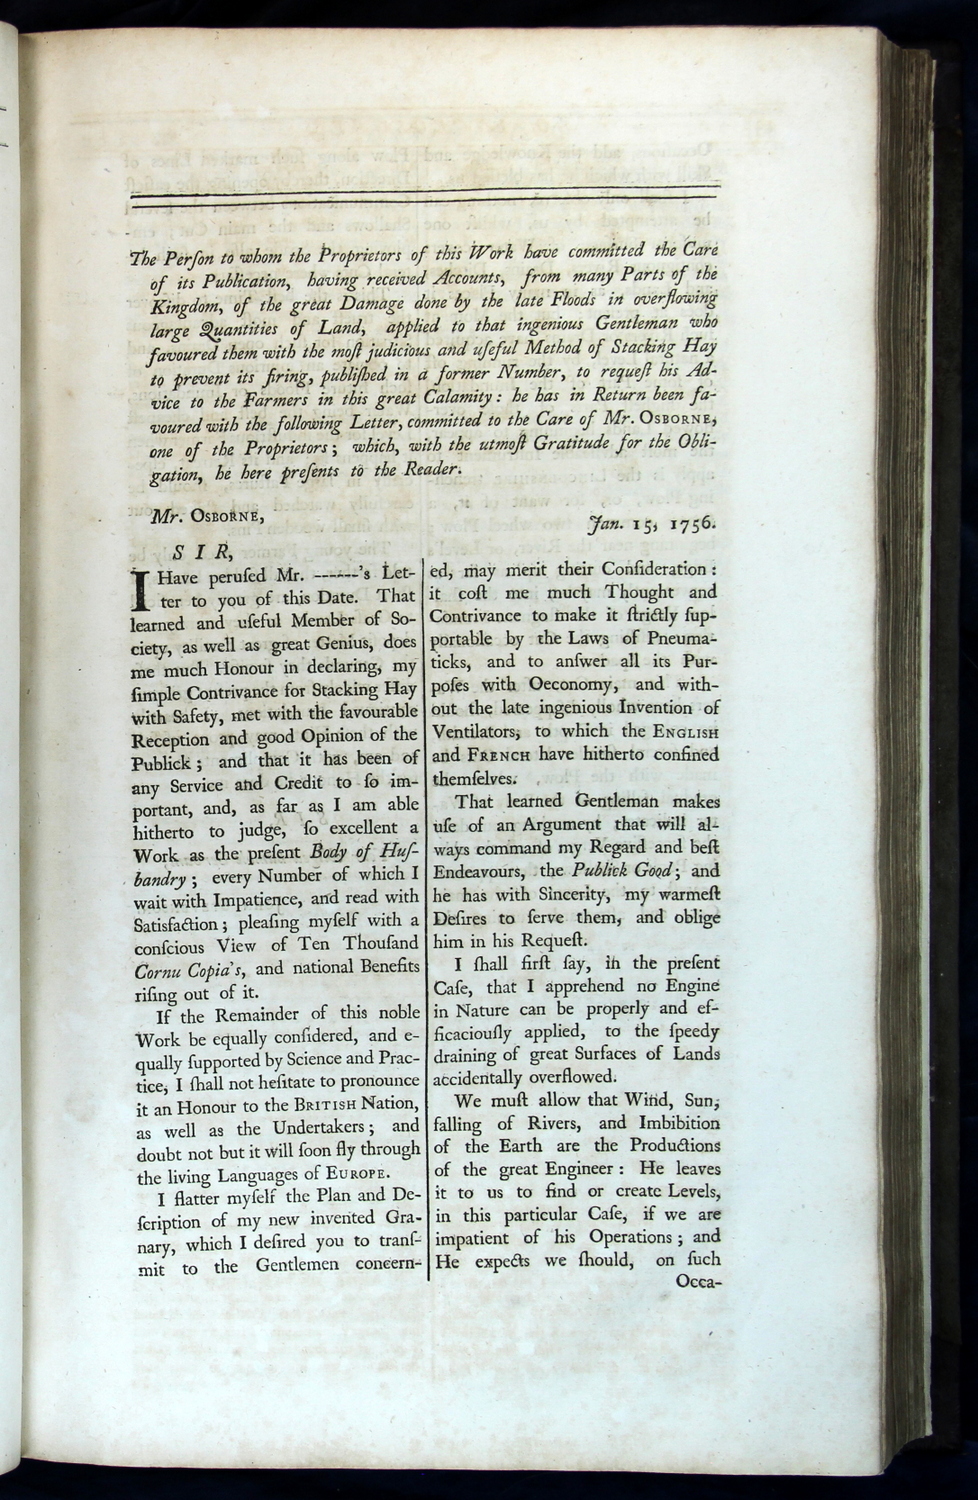 The Perſon to whom the Proprietors of this Work have committed the Care
of its Publication, having received Accounts, from many Parts of the
Kingdom, of the great Damage done by the late Floods in overflowing
large Quantities of Land, applied to that ingenious Gentleman who
favoured them with the moſt judicious and uſeful Method of Stacking Hay
to prevent its firing, publiſhed in a former Number, to requeſt his Ad-
vice to the Farmers in this great Calamity: he has in Return been fa-
voured with the following Letter, committed to the Care of Mr. OSBORNE,
one of the Proprietors; which, with the utmoſt Gratitude for the Obli-
gation, he here preſents to the Reader.
Mr. OSBORNE,
Jan. 15, 1756.
SIR,
I Have peruſed Mr. ------'s Let-
ter to you of this Date. That
learned and uſeful Member of So-
ciety, as well as great Genius, does
me much Honour in declaring, my
ſimple Contrivance for Stacking Hay
with Safety, met with the favourable
Reception and good Opinion of the
Publick; and that it has been of
any Service and Credit to ſo im-
portant, and, as far as I am able
hitherto to judge, ſo excellent a
Work as the preſent Body of Huſ-
bandry; every Number of which I
wait with Impatience, and read with
Satisfaction; pleaſing myſelf with a
conſcious View of Ten Thouſand
Cornu Copia's, and national Benefits
riſing out of it.
If the Remainder of this noble
Work be equally conſidered, and e-
qually ſupported by Science and Prac-
tice, I ſhall not heſitate to pronounce
it an Honour to the BRITISH Nation,
as well as the Undertakers; and
doubt not but it will ſoon fly through
the living Languages of EUROPE.
I flatter myſelf the Plan and De-
ſcription of my new invented Gra-
nary, which I deſired you to tranſ-
mit to the Gentlemen concern-
ed, may merit their Conſideration:
it coſt me much Thought and
Contrivance to make it ſtrictly ſup-
portable by the Laws of Pneuma-
ticks, and to anſwer all its Pur-
poſes with Oeconomy, and with-
out the late ingenious Invention of
Ventilators, to which the ENGLISH
and FRENCH have hitherto confined
themſelves.
That learned Gentleman makes
uſe of an Argument that will al-
ways command my Regard and beſt
Endeavours, the Publick Good; and
he has with Sincerity, my warmeſt
Deſires to ſerve them, and oblige
him in his Requeſt.
I ſhall firſt ſay, in the preſent
Caſe, that I apprehend no Engine
in Nature can be properly and ef-
ficaciouſly applied, to the ſpeedy
draining of great Surfaces of Lands
accidentally overflowed.
We muſt allow that Wind, Sun,
falling of Rivers, and Imbibition
of the Earth are the Productions
of the great Engineer: He leaves
it to us to find or create Levels,
in this particular Caſe, if we are
impatient of his Operations; and
He expects we ſhould, on ſuch
Occa-